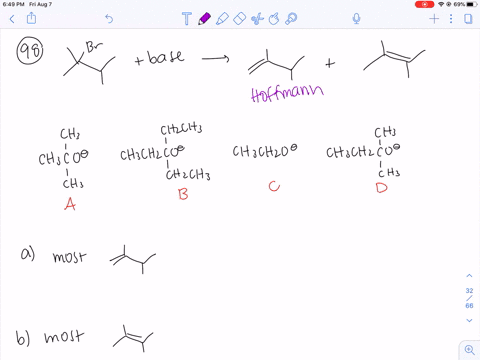 6:49 PM Fri Aug 7
69%
98
Br
+ base
+
Hoffmann
CH3
CH3CO⊖
CH3
A
CH2CH3
CH3CH2CO⊖
CH2CH3
B
CH3CH2O⊖
C
CH3
CH3CH2CO⊖
CH3
D
a) most
b) most
32
/
66